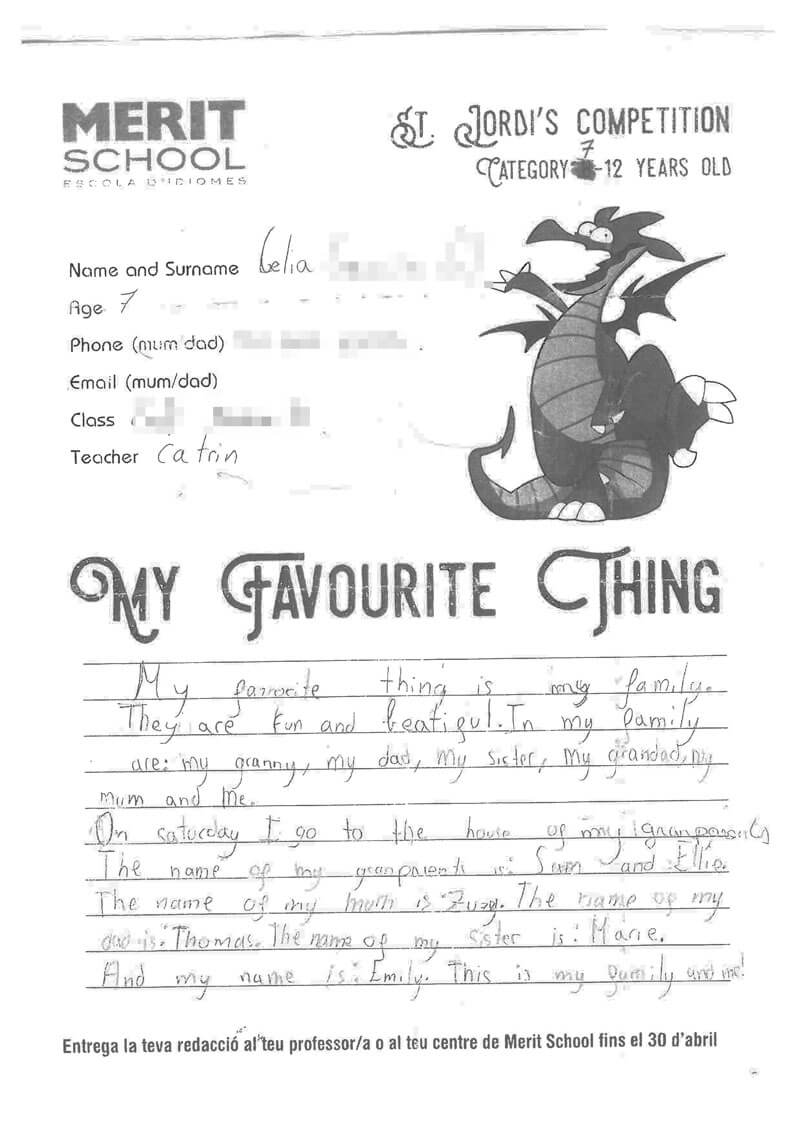 MERIT
SCHOOL
ESCOLA D'IDIOMES
ST. JORDI'S COMPETITION
7
CATEGORY -12 YEARS OLD
Name and Surname Celia
Age 7
Phone (mum dad)
Email (mum/dad)
Class
Teacher Catrin
MY FAVOURITE THING
My favorite thing is my family.
They are fun and beatiful. In my family
are: my granny, my dad, my sister, my grandad, my
mum and me.
On saturday I go to the house of my granparents
The name of my granparents is: Sam and Ellie.
The name of my mum is Zuzy. The name of my
dad is: Thomas. The name of my sister is: Marie.
And my name is: Emily. This is my family and me!
Entrega la teva redacció al teu professor/a o al teu centre de Merit School fins el 30 d'abril